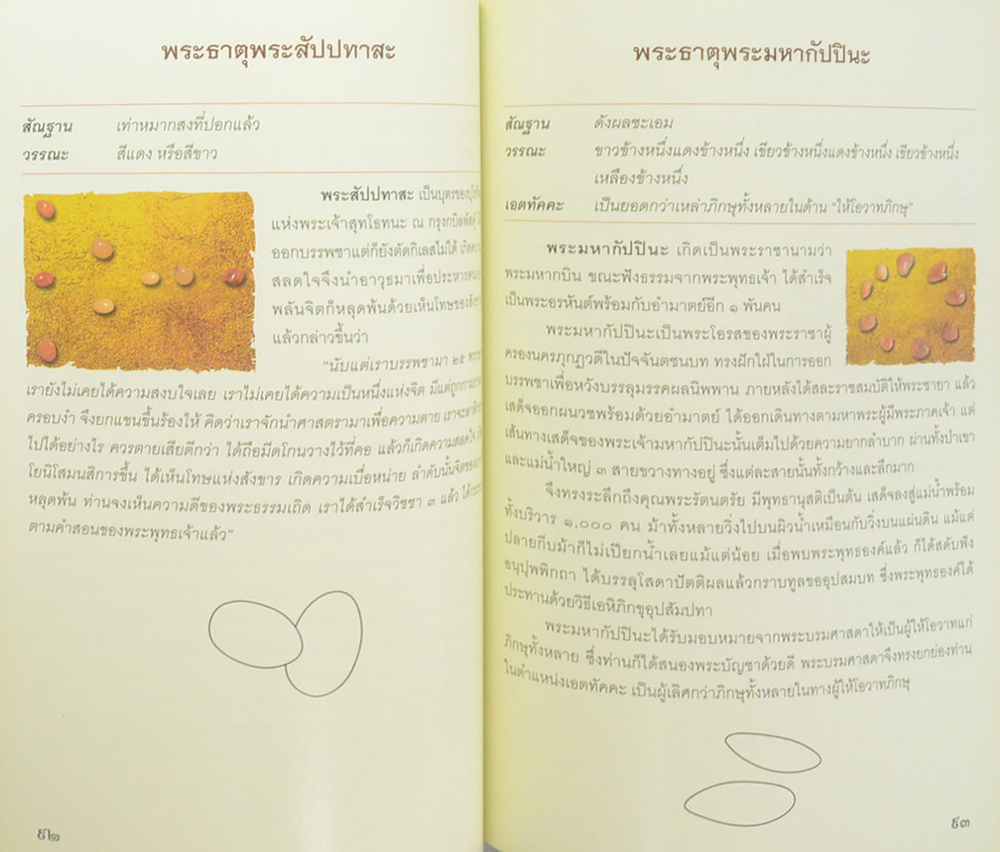 พระธาตุพระสัปปทาสะ
สัณฐาน เท่าหมากสงที่ปอกแล้ว
วรรณะ สีแดง หรือสีขาว
พระสัปปทาสะ เป็นบุตรของ
แห่งพระเจ้าสุทโธทนะ ณ กรุงกบิลพัสดุ์
ออกบรรพชาแต่ก็ยังตัดกิเลสไม่ได้
สลดใจจึงนำอาวุธมาเพื่อประหาร
พลันจิตก็หลุดพ้นด้วยเห็นโทษของ
แล้วกล่าวขึ้นว่า
"นับแต่เราบรรพชามา ๒๕
เรายังไม่เคยได้ความสงบใจเลย เราไม่เคยได้ความเป็นหนึ่งแห่งจิต
ครอบงำ จึงยกแขนขึ้นร้องไห้ คิดว่าเราจักนำศาสตรามาเพื่อความตาย
ไปได้อย่างไร ควรตายเสียดีกว่า ได้ถือมีดโกนวางไว้ที่คอ แล้วก็เกิดความสลดใจ
โยนิโสมนสิการขึ้น ได้เห็นโทษแห่งสังขาร เกิดความเบื่อหน่าย ลำดับนั้นจิตของ
หลุดพ้น ท่านจงเห็นความดีของพระธรรมเถิด เราได้สำเร็จวิชชา ๓ แล้ว
ตามคำสอนของพระพุทธเจ้าแล้ว"
๙๒
พระธาตุพระมหากัปปินะ
สัณฐาน ดังผลชะเอม
วรรณะ ขาวข้างหนึ่งแดงข้างหนึ่ง เขียวข้างหนึ่งแดงข้างหนึ่ง เขียวข้างหนึ่ง
เหลืองข้างหนึ่ง
เอตทัคคะ เป็นยอดกว่าเหล่าภิกษุทั้งหลายในด้าน "ให้โอวาทภิกษุ"
พระมหากัปปินะ เกิดเป็นพระราชานามว่า
พระมหากบิน ขณะฟังธรรมจากพระพุทธเจ้า ได้สำเร็จ
เป็นพระอรหันต์พร้อมกับอำมาตย์อีก ๑ พันคน
พระมหากัปปินะเป็นพระโอรสของพระราชาผู้
ครองนครกุกฏวดีในปัจจันตชนบท ทรงฝักใฝ่ในการออก
บรรพชาเพื่อหวังบรรลุมรรคผลนิพพาน ภายหลังได้สละราชสมบัติให้พระชายา แล้ว
เสด็จออกผนวชพร้อมด้วยอำมาตย์ ได้ออกเดินทางตามหาพระผู้มีพระภาคเจ้า แต่
เส้นทางเสด็จของพระเจ้ามหากัปปินะนั้นเต็มไปด้วยความยากลำบาก ผ่านทั้งป่าเขา
และแม่น้ำใหญ่ ๓ สายขวางทางอยู่ ซึ่งแต่ละสายนั้นทั้งกว้างและลึกมาก
จึงทรงระลึกถึงคุณพระรัตนตรัย มีพุทธานุสติเป็นต้น เสด็จลงสู่แม่น้ำพร้อม
ทั้งบริวาร ๑,๐๐๐ คน ม้าทั้งหลายวิ่งไปบนผิวน้ำเหมือนกับวิ่งบนแผ่นดิน แม้แต่
ปลายกีบม้าก็ไม่เปียกน้ำเลยแม้แต่น้อย เมื่อพบพระพุทธองค์แล้ว ก็ได้สดับฟัง
อนุปุพพิกถา ได้บรรลุโสดาปัตติผลแล้วกราบทูลขออุปสมบท ซึ่งพระพุทธองค์ได้
ประทานด้วยวิธีเอหิภิกขุอุปสัมปทา
พระมหากัปปินะได้รับมอบหมายจากพระบรมศาสดาให้เป็นผู้ให้โอวาทแก่
ภิกษุทั้งหลาย ซึ่งท่านก็ได้สนองพระบัญชาด้วยดี พระบรมศาสดาจึงทรงยกย่องท่าน
ในตำแหน่งเอตทัคคะ เป็นผู้เลิศกว่าภิกษุทั้งหลายในทางผู้ให้โอวาทภิกษุ
๙๓